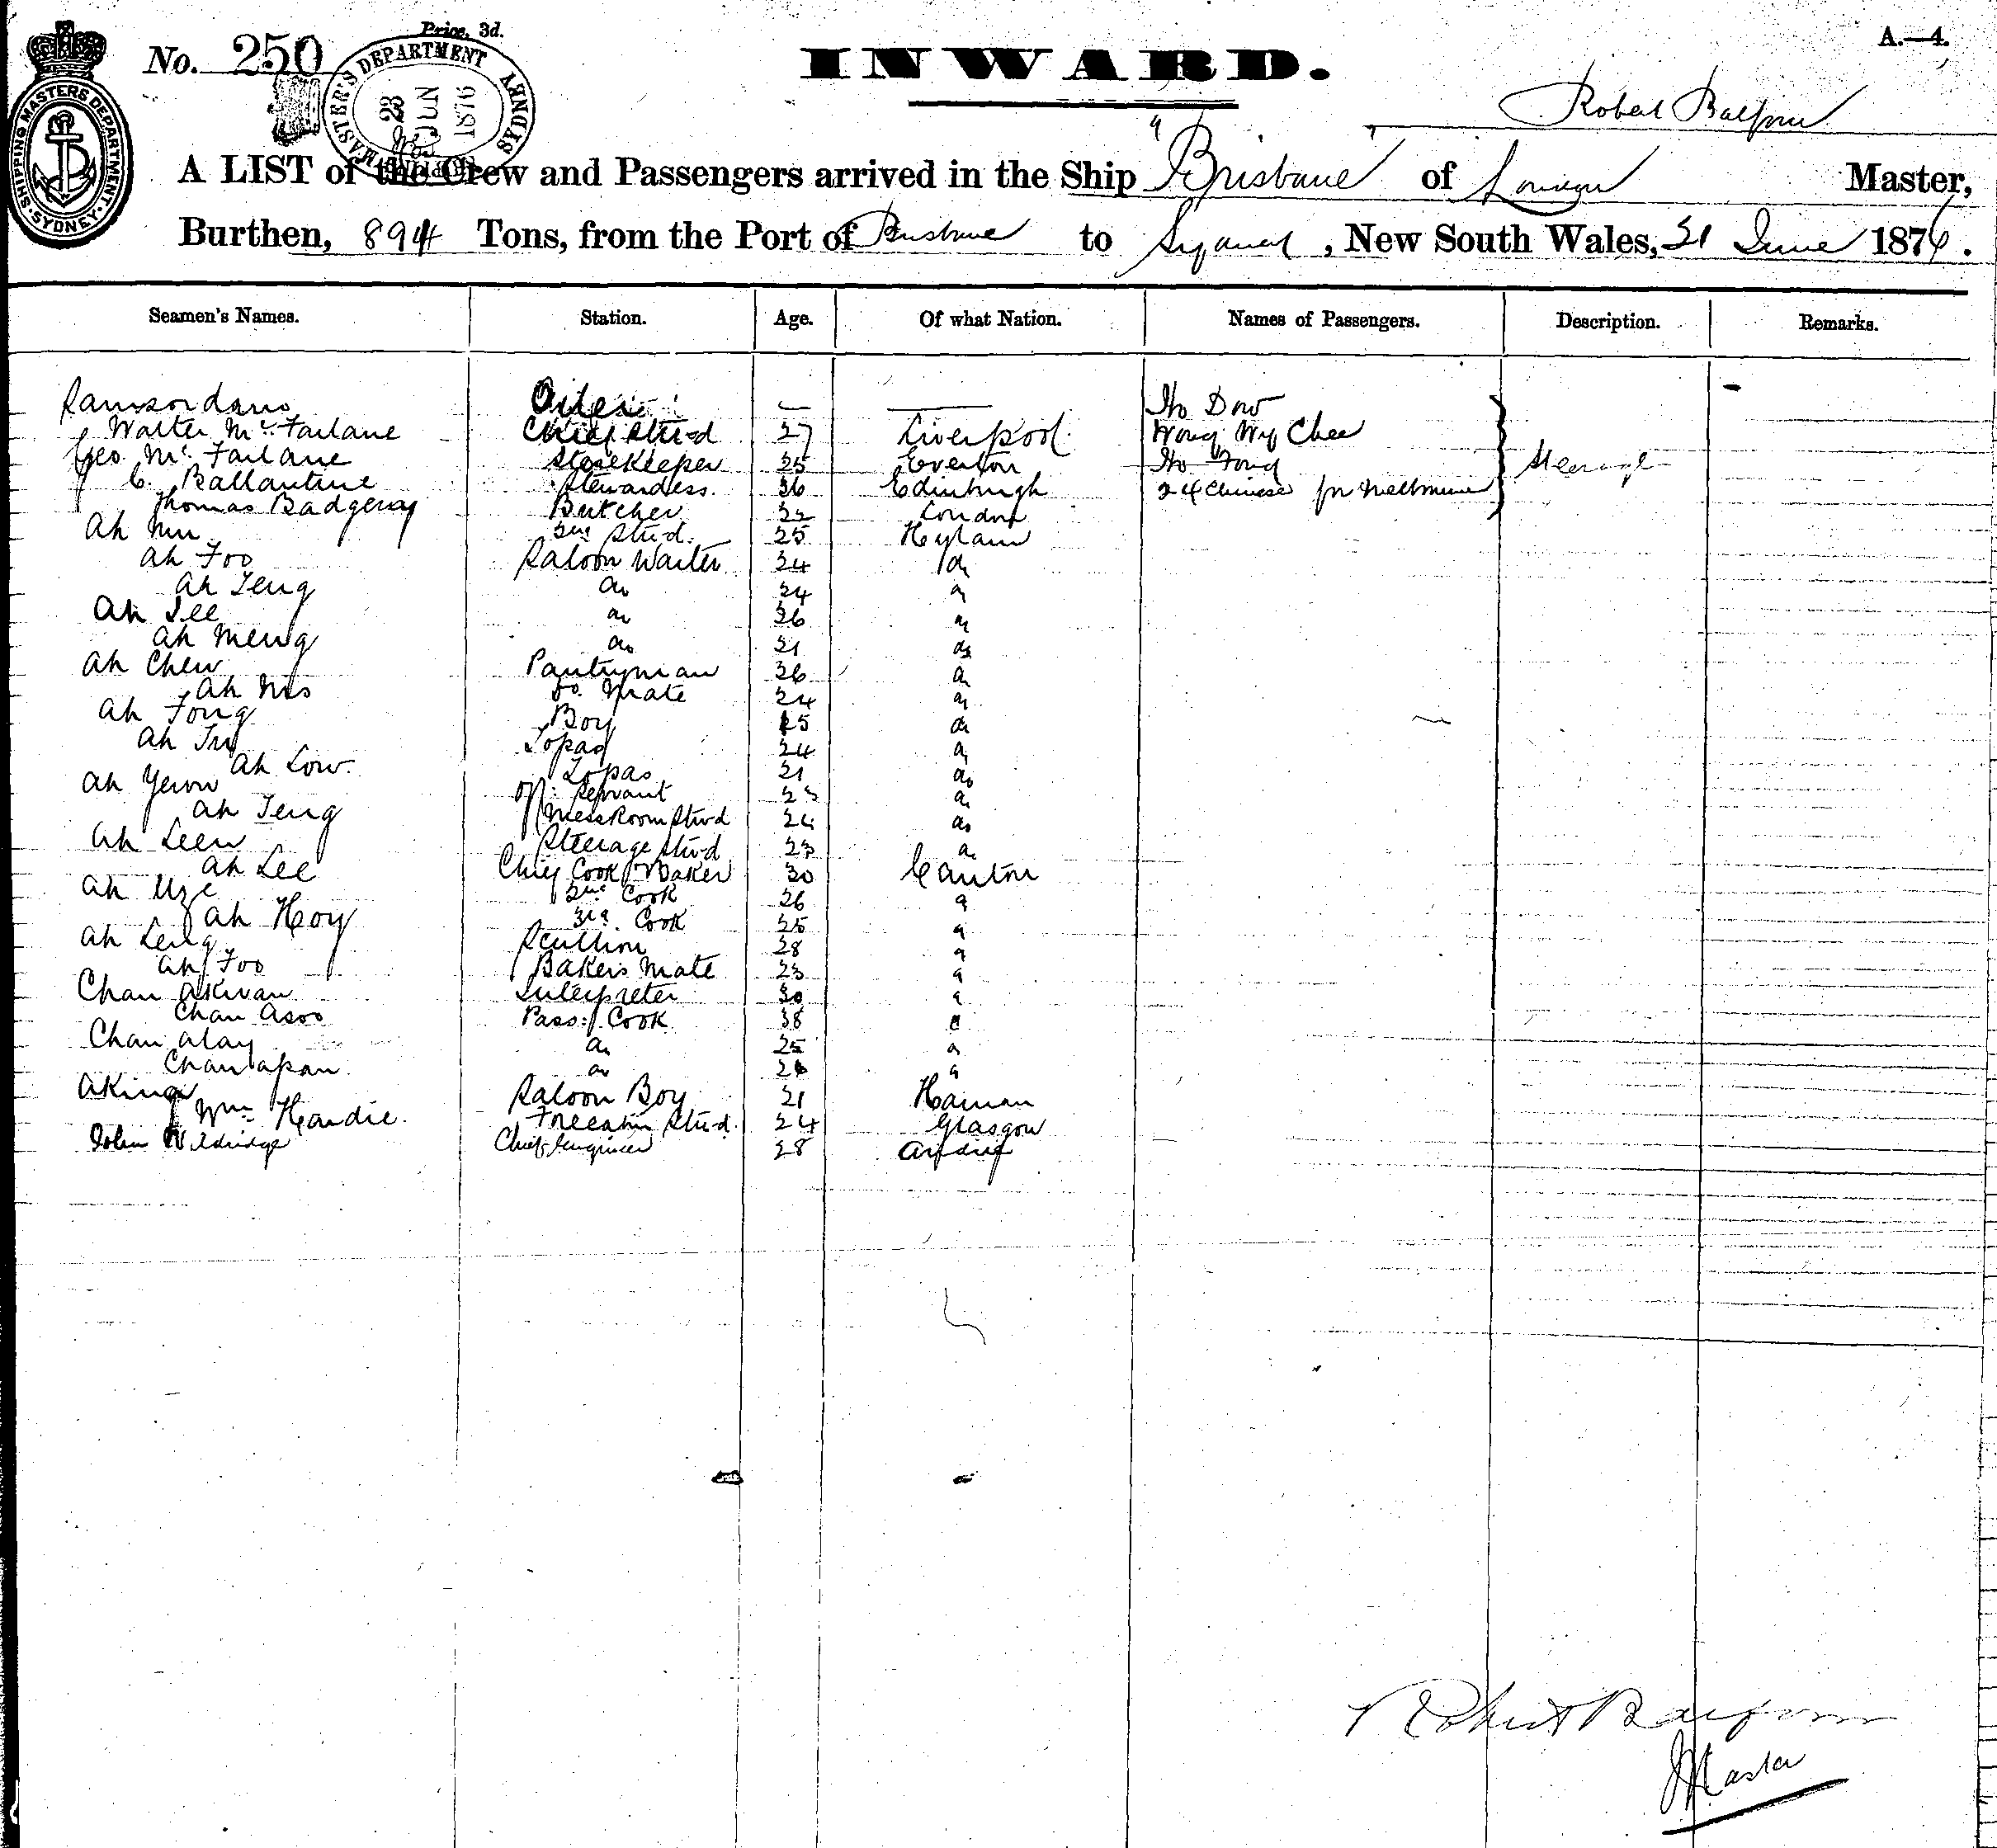 No. 250
Price, 3d.
SHIPPING MASTER'S DEPARTMENT SYDNEY
23 JUN 1876
SHIPPING MASTERS DEPARTMENT. SYDNEY.
INWARD.
A.—4.
Robert Balfour
A LIST of the Crew and Passengers arrived in the Ship "Brisbane" of London Master,
Burthen, 894 Tons, from the Port of Brisbane to Sydney, New South Wales, 21 June 1876.
Seamen's Names. Station. Age. Of what Nation. Names of Passengers. Description. Remarks.
Ramsordano Oiler — — Ho Dow
Walter McFarlane Chief Stwd 27 Liverpool Wong Wy Chee
Geo McFarlane Storekeeper 25 Everton Ho Fong Steerage
C. Ballantine Stewardess 36 Edinburgh 24 Chinese for Melbourne
Thomas Badgery Butcher 22 London
Ah 2nd Stwd. 25 Hylam
Ah Foo Saloon Waiter 24 do
Ah Teng do 24 do
Ah See do 26 do
Ah Meng do 21 do
Ah Chew Pantryman 26 do
Ah do. Mate 24 do
Ah Fong Boy 15 do
Ah Topas 24 do
Ah Low. Topas 21 do
Ah Yewn Off. Servant 23 do
Ah Teng Mess Room Stwd 24 do
Ah Leen Steerage Stwd 23 do
Ah Lee Chief Cook Baker 30 Canton
Ah 2nd Cook 26 do
Ah Hoy 3rd Cook 25 do
Ah Leng Scullion 28 do
Ah Foo Bakers Mate 23 do
Chan Akwan Interpreter 30 do
Chan Asoo Pass: Cook 38 do
Chan Alay do 25 do
Chan Apan do do
Aking Saloon Boy 21 Hainan
Wm Hardie. Forecabin Stwd. 24 Glasgow
John Wildridge Chief Engineer 28
Robert Balfour
Master